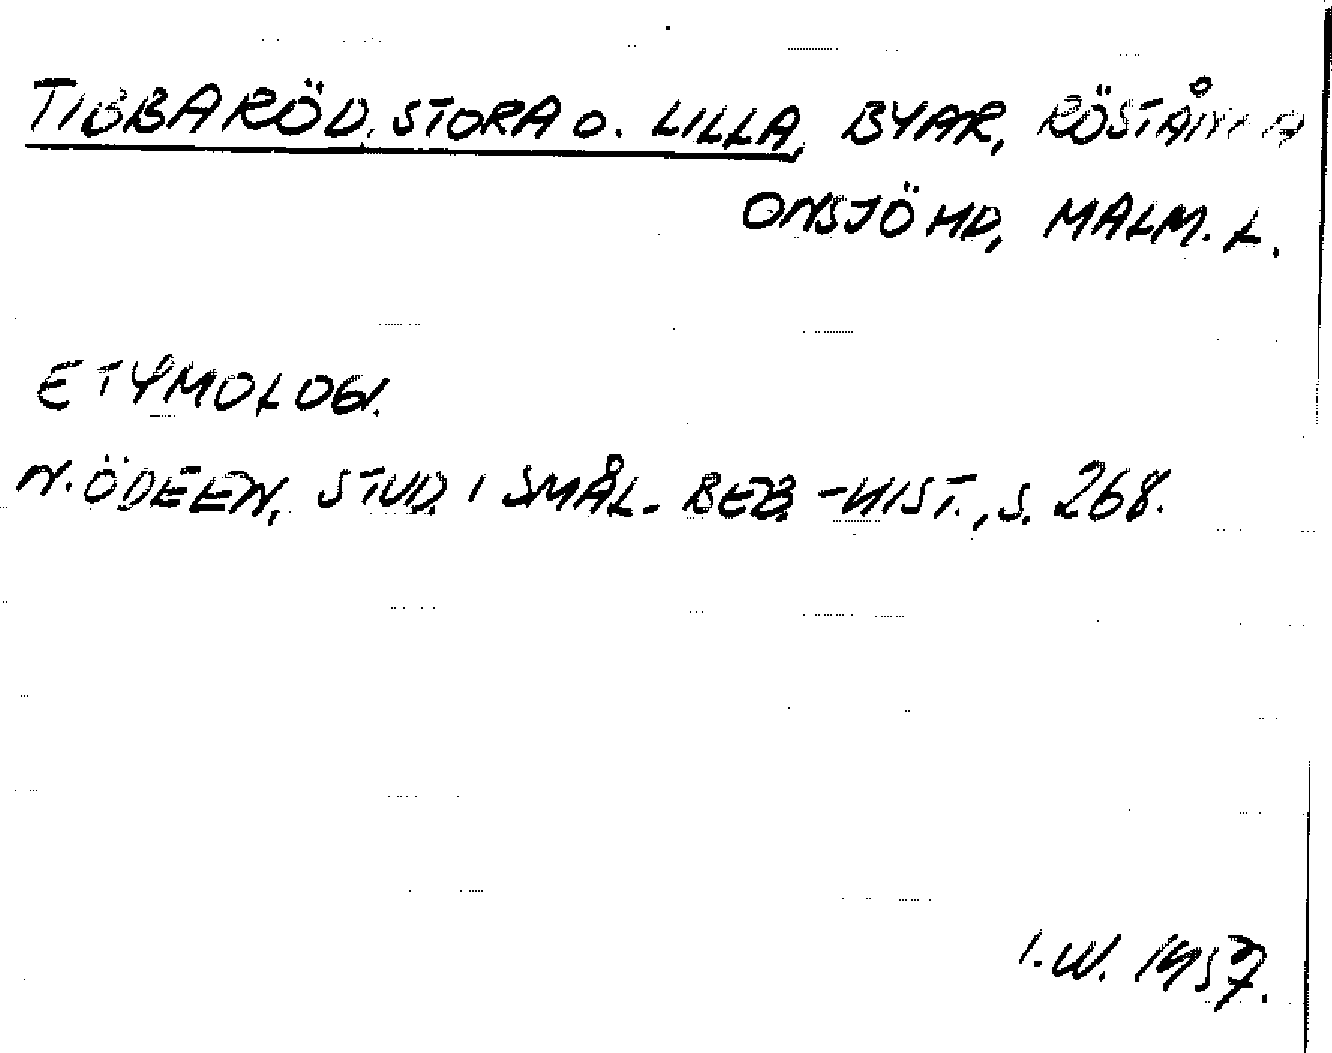 TIBBARÖD, STORA O. LILLA, BYAR, RÖSTÅNGA
ONSJÖ HD, MALM. L.
ETYMOLOGI.
N. ÖDEEN, STUD. I SMÅL. BEB. -HIST., S. 268.
I. W. 1957.